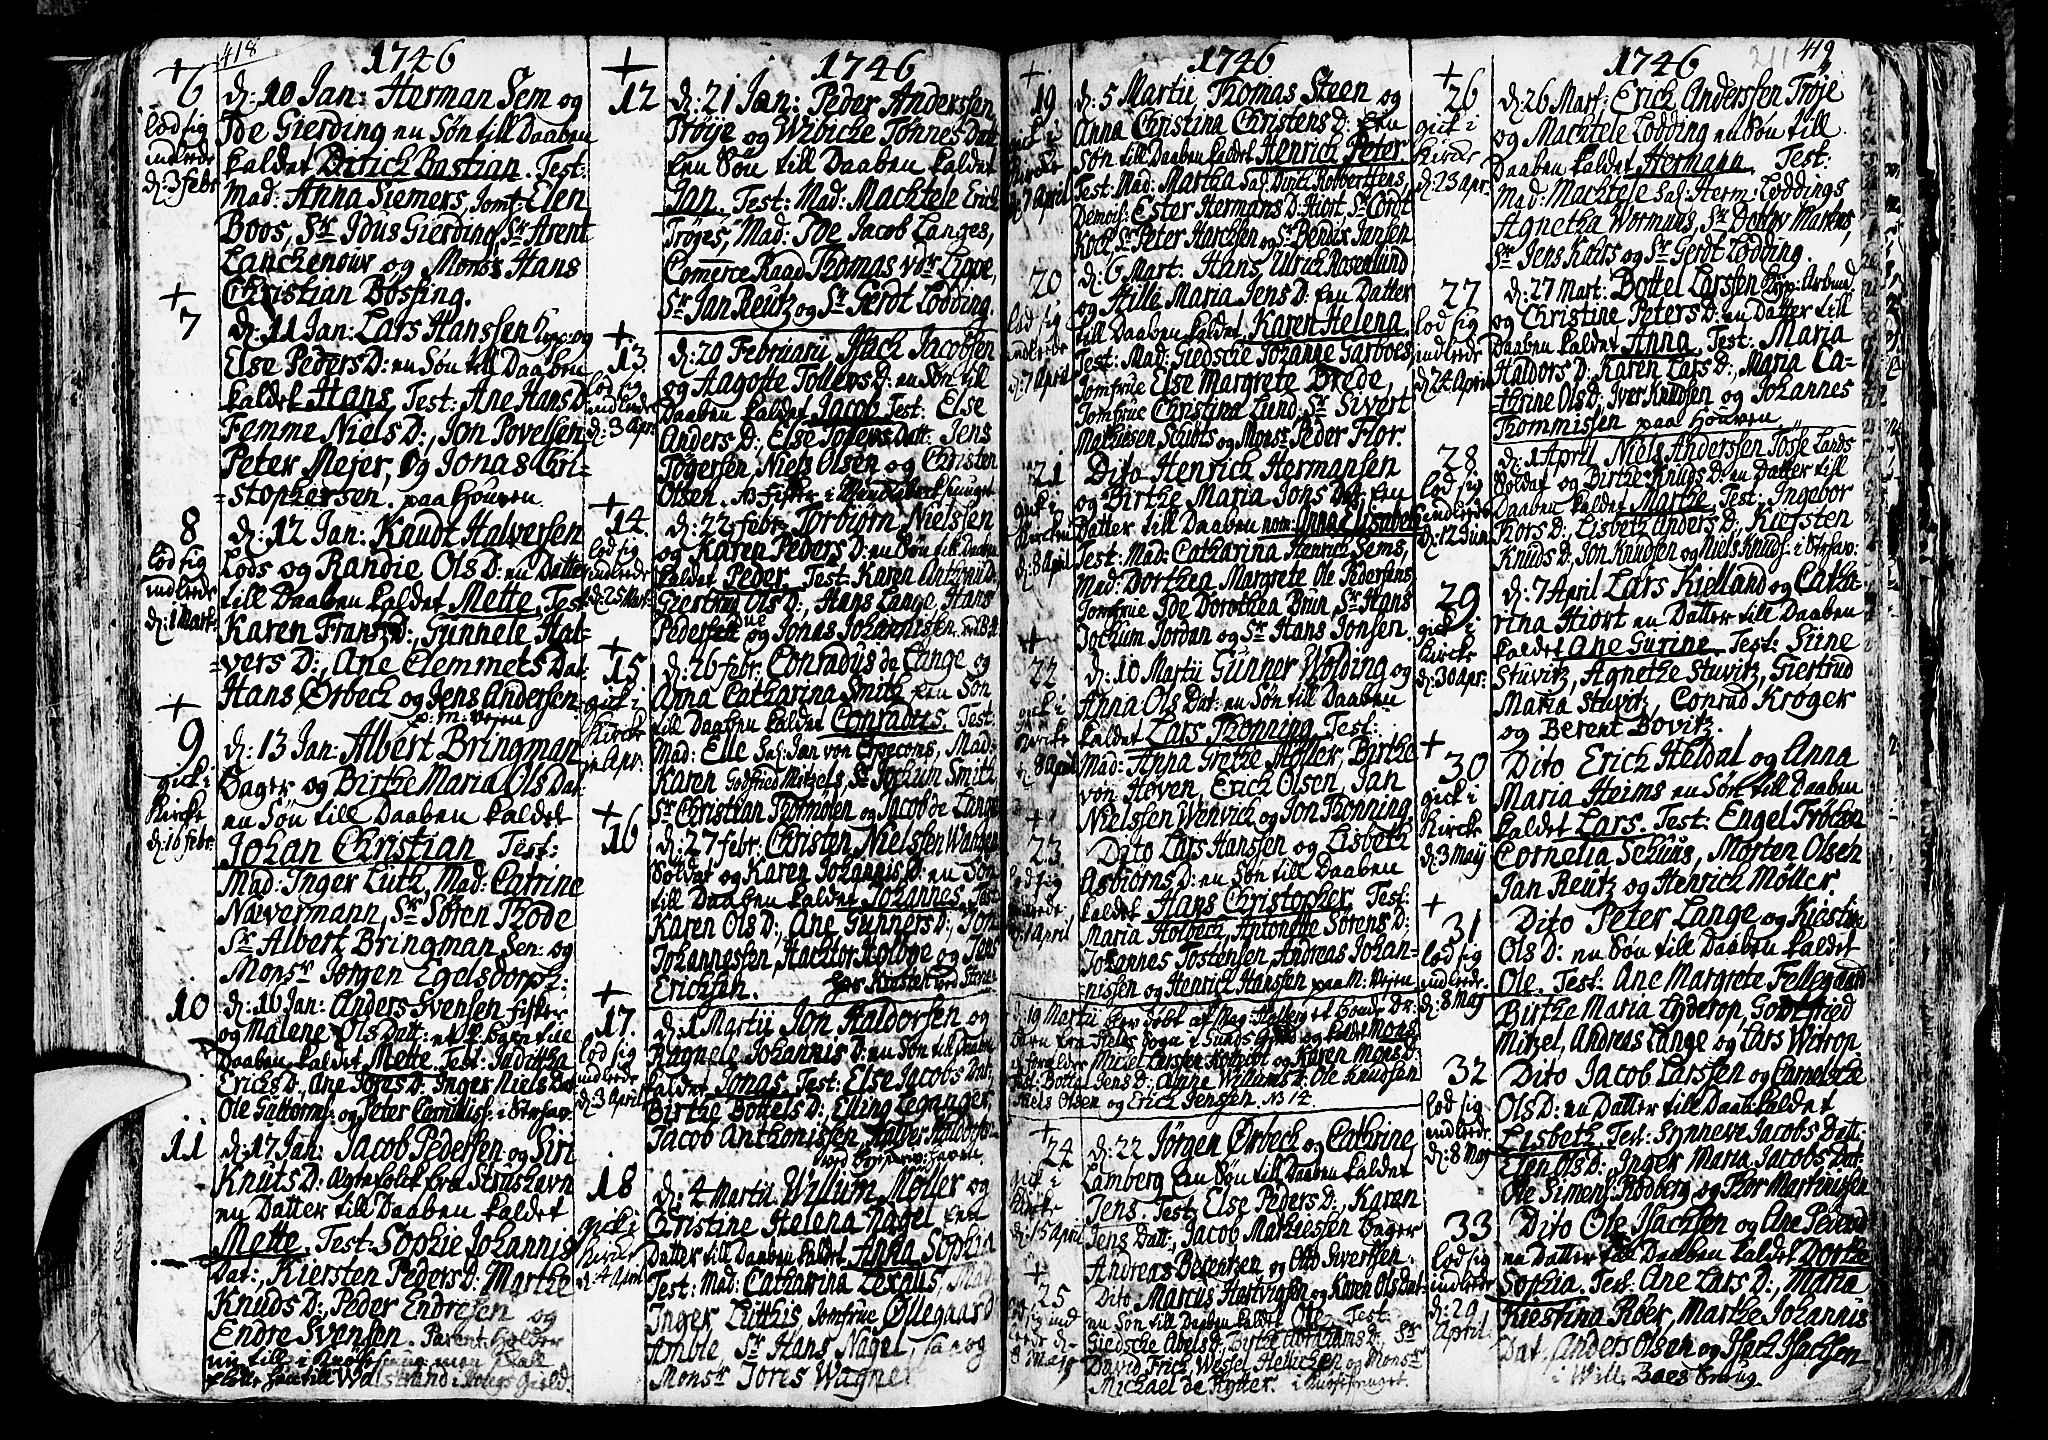 418
1746
+
6
lod sig
indlede
d: 3 febr
d: 10 Jan: Herman Sem og
Ide Gierding en Søn till Daaben
kaldet Dirich Bastian. Test:
Mad: Anna Siemers, Jomf: Elen
Boos, Sr Idus Gierding, Sr Arent
Lanckenouv og Monsr Hans
Christian Bøsfing.
+
7
d: 11 Jan: Lars Hanssen og
Else Peders D: en Søn till Daaben
kaldet Hans, Test: Ane Hans D
Femme Niels D:, Jon Povelsen
Peter Mejer, og Jonas Chri-
=stophersen. paa Houven
8
lod sig
indlede
d: 1 Mart:
d: 12 Jan: Knudt Halversen
Lods og Randie Ols D: en Datter
till Daaben kaldet Mette. Test
Karen Frantz D:, Gunnele Hal-
=vers D:, Ane Clemmets Dat:
Hans Ørbech og Jens Andersen
p: M: Vejen
+
9
gick i
Kircke
d: 16 febr:
d: 13 Jan: Albert Bringman
Bager og Birthe Maria Ols Dat:
en Søn till Daaben kaldet
Johan Christian Test:
Mad: Inger Lüth, Mad: Catrine
Nawermann, Sr Søren Thode
Sr Albert Bringman Sen: og
Monsr Jørgen Egelsdorph:
10
d: 16 Jan: Anders Svensen fisker
og Malene Ols Datt:
Daaben kaldet Mette. Test:
Erichs D:, Ane Joris D: Inger Niels Dat
11
d: 17 Jan: Jacob Pedersen og Siri
Knuts D: Ægtefolck fra Strushavn
en Datter till Daaben kaldet
Mette. Test: Sophie Johannis
Dat:, Kiersten Peders D: Marthe
Knuds D:, Peder Endresen og
Endre Svensen.
+
12
1746
d: 21 Jan: Peder Anderssen
Trøije og Wibicke Tønnes Dat
een Søn till Daaben kaldet
Jan. Test: Mad: Machtele Erich
Trøges, Mad: Ide Jacob Langes,
Comerce Raad Thomas von Ligoe,
Sr Jan Reutz og Sr Gerdt Lodding.
+
13
lod sig
indlede
d: 3 Apr:
d: 20 Februarii Isach Jacobsen
og Aagotte Tollevs D: en Søn till
Daaben kaldet Jacob Test: Else
Anders D:, Else Tollevs Datt: Jens
Tøgersen Niels Olsen og Christen
Olsen.
+
14
lod sig
indlede
d: 25 Mart:
d: 22 febr: Torbiørn Nielssen
og Karen Peders D: en Søn till Daaben
kaldet Peder. Test: Karen
Giertrou Ols D:, Hans Lange, Hans
Pedersen og Jonas Johannisen,
+
15
gick i
Kircke
d: 26 febr: Conradus de Lange og
Anna Catharina Smith een Søn
till Daaben kaldet Conradus. Test:
Mad: Elle Sal: Jan von Mad:
Karen Godtfried Mitzels, Sr Jochum Smith
Sr Christian Thormolen og Jacob de Lange
+
16
d: 27 febr: Christen Nielssen
Soldat og Karen Johannis D: en Søn
till Daaben kaldet Johannes, Test
Karen Ols D:, Ane Gunners D:, Jon
Johannessen, Hachtor Holboe og Jens
Erichsen.
+
17.
lod sig
indlede
d: 3 April
d: 1 Martii Jon Haldorsen og
Ragnele Johannis D: en Søn till Daaben
kaldet Jonas, Test: Else Jacobs Dat:,
Birthe Bottels D:, Elling Leganger,
Jacob Anthonissen,
18
gick i
Kircke
d: 4 April
d: 4 Martii Willum Møller og
Christine Helena Nagel een
Datter till Daaben kaldet Anna Sophia
Test: Mad: Catharina Lexaus, Mad
Inger Lütkis, Jomfrue Øllegaard
Amble, Sr Hans Nagel,
Monsr Joris Wagner
+
19
gick i
Kircke
d: 7 April
1746
d: 5 Martii Thomas Steen og
Anna Christina Christens D: een
Søn till Daaben kaldet Henrich Peter
Test: Mad: Martha Sal: Dirik Rolbertsens,
Demois: Ester Hermans D: Hiort, Sr Cordt
Kock, Sr Peter Harchsen og Sr Bendix Jansen
20
lod sig
indlede
d: 7 April
d: 6 Mart. Hans Ulrich Rosenlund
og Hille Maria Jens D: een Datter
till Daaben kaldet Karen Helena.
Test: Mad: Giedsche Johanne Garboes,
Jomfrue Else Margrete Brede,
Jomfrue Christina Lund, Sr Sivert
Mathiesen Schots og Monsr Peder Flor.
21
gick i
Kircken
d: 8 April
Dito Henrich Hermansen
og Birthe Maria Jons Dat: een
Datter till Daaben nom: Anna Elisabeth
Test: Mad: Catharina Henrich Sems,
Mad: Dorthea Margrete Ole Pedersens,
Jomfrue Ide Dorothea Brun, Sr Hans
Jochum Jordan og Sr Hans Jonsen.
+
22
gick i
Kircke
d: 8 April
d: 10 Martii Gunner Wolding og
Anna Ols Dat: en Søn till Daaben
kaldet Lars Thonning, Test:
Mad: Anna Grethe Møller, Birthe
von Høven, Erich Olsen, Jan
Nielssen Wenvich og Jon Thonning,
+
23
lod sig
indlede
April
Dito Lars Hanssen og Lisbeth
Asbiørns D: en Søn till Daaben
kaldet Hans Christopher, Test:
Maria Holbech, Antonette Sørens D:
Johannes Tostensen, Andreas Johan-
nissen og Henrich Hansen paa M: Vejen
d: 19 Martii
Michel Larsen og Karen Mons D:
Jens D: Anne Willums D: Ole Knudsen
Niels Olsen og Erich Jensen. N 14
+
24
gick i
Kircke
d: 15 April
d: 22 Jørgen Ørbeck og Cathrine
Lamberg een Søn till Daaben kaldet
Jens. Test: Else Peders D:, Karen
Jens Datt:, Jacob Mathiessen Bager
Andreas Berentsen og Otto Sivertsen:
+
25
Dito Marcus Hartvigsen og Karen Ols Dat:
en Søn till Daaben kaldet Ole. Test:
Giedsche Abels D:, Birthe Abrahams D: Sr
David Frich, Wessel og Monsr
Michael de Rytter.
+
26
gick i
Kircke
d: 23 Apr:
1746
419
d: 26 Mart: Erich Anderssen Trøje
og Machtele Lodding en Søn till
Daaben kaldet Hermann. Test:
Mad: Machtele Sal: Herm: Loddings
Agnetha Wormuus, Sr Detlov Markus,
Sr Jens Kaas og Sr Gerdt Lodding.
27
lod sig
indlede
d: 24 April
d: 27 Mart: Bottel Larssen
og Christine Peters D: en Datter till
Daaben kaldet Anna. Test: Maria
Haldors D: Karen Lars D:, Maria Ca-
=thrine Ols D: Iver Knudsen og Johannes
Thommissen paa Houven
28
lod sig
indlede
d: 12 Juni
d: 1 April Niels Anderssen
Soldat og Birthe Knuds D: en Datter till
Daaben kaldet Marthe. Test: Ingebor
Thors D:, Lisbeth Anders D:, Kiersten
Knuds D:, Jon Knudsen og Niels Knuds:
29
gick i
Kircke
d: 30 Apr:
d: 7 April Lars Kielland og Catha-
rina Hiort en Datter till Daaben
kaldet Ane Gurine. Test: Siine
Stuvitz, Agnethe Stuvitz, Giertrud
Maria Stuvitz, Conrad Krøger
og Berent Bovitz.
+
30
gick i
Kircke
d: 3 Maij
Dito Erich Heldal og Anna
Maria Heims en Søn till Daaben
kaldet Lars. Test: Engel Frøchen
Cornelia Schuus, Morten Olsen
Jan Reutz og Henrich Møller.
+
31
lod sig
indlede
d: 8 Maj
Dito Peter Lange og Kiestine
Ols D: en Søn till Daaben kaldet
Ole. Test: Ane Margrete Fellegaard
Birthe Maria Lyderop, Godtfried
Mitzel, Andreas Lange og Lars Witrop
32
lod sig
indlede
d: 8 Maj
Dito Jacob Larssen og
Ols D: en Datter till Daab: kaldet
Lisbeth. Test: Synneve Jacobs Datt:
Elen Ols D:, Inger Maria Jacobs Dat
Ole Simens: Rødberg og Thor Martinussen
33
lod sig
indlede
d: 29
April
Dito Ole Isachsen og Ane Peders D
en Datter till Daaben kaldet Dorthe
Sophia. Test: Ane Lars D:, Maria
Kiestina Riber, Marthe Johannis
Dat: Anders Olsen og Isach Isachsen